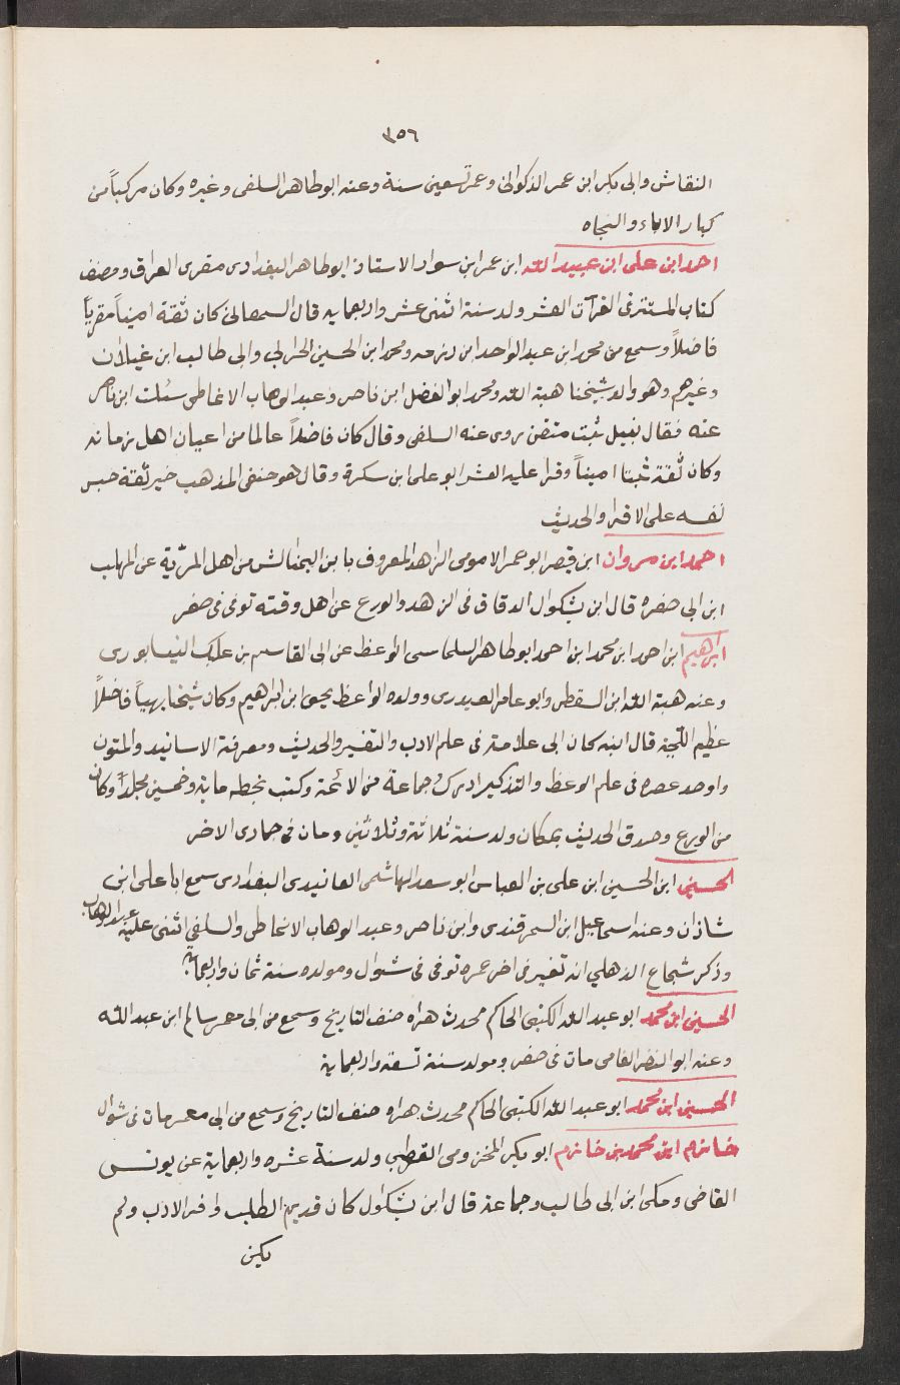 ٣٥٦
النقاش وابى بكر ابن عمر الذكوانى وعمر تسعين سنة وعنه ابو طاهر السلفى وغيره وكان مركباً من
كبار الادباء والنجاه
احمد ابن على ابن عبيد الله ابن عمر ابن سوار الاستاذ ابو طاهر البغدادى مقرى العراق ومصنف
كتاب المستنير فى القرآت العشر ولد سنة اثنى عشر واربعمايه قال السمعانى كان ثقة اميناً مقرياً
فاضلاً وسمع من محمد ابن عبد الواحد ابن رزمه ومحمد ابن الحسين الحرانى وابى طالب ابن غيلان
وغيرهم وهو والد شيخنا هبة الله ومحمد ابو الفضل ابن ناصر وعبد الوهاب الانماطى سئلت ابن ناصر
عنه فقال نبيل ثبت متقن روى عنه السلفى وقال كان فاضلاً عالما من اعيان اهل زمانه
وكان ثقة ثبتا اميناً وقرا عليه العشر ابو على ابن سكرة وقال هو حنفى المذهب خير ثقة حبس
نفسه على الاقرا والحديث
احمد ابن مروان ابن قيصر ابو عمر الاموى الزاهد المعروف بابن اهل المريّة عن المهلب
ابن ابى صفره قال ابن بشكوال الدقاق فى الزهد والورع عن اهل وقته توفى فى صفر
ابراهيم ابن احمد ابن محمد ابن احمد ابو طاهر السلماسى الواعظ عن ابى القاسم بن عليك النيسابورى
وعنه هبة الله ابن السقطى وابو عامر العبدرى وولده الواعظ يحيى ابن ابراهيم وكان شيخا بهياً فاضلاً
عظيم اللحية قال ابنه كان ابى علامة فى علم الادب والتفسير والحديث ومعرفة الاسانيد والمتون
واوحد عصره فى علم الوعظ والتذكير ادرك جماعة من الائمة وكتب بخطه ماية وخمسين مجلداً وكان
من الورع وصدق الحديث بمكان ولد سنة ثلاثة وثلاثين ومات فى جمادى الاخر
الحسين ابن الحسين ابن على بن العباس ابو سعد الهاشمى الفانيدى البغدادى سمع ابا على ابن
شاذان وعنه اسماعيل ابن السمرقندى وابن ناصر وعبد الوهاب الانماطى والسلفى اثنى عليه عبد الوهاب
وذكر شجاع الذهلي انه تغير فى اخر عمره توفى فى شوال ومولده سنة ثمان واربعماية
الحسين ابن محمد ابو عبد الله الكتبى الحاكم محدث هراه صنف التاريخ وسمع من ابى معمر سالم ابن عبد الله
وعنه ابو النضر الفامى مات فى صفر ومولد سنة تسعة واربعماية
الحسين ابن محمد ابو عبد الله الكتبى الحاكم محدث هراه صنف التاريخ وسمع من ابى معمر مات فى شوال
خازم ابن محمد بن خازم ابو بكر المخزومى القرطبى ولد سنة عشره واربعماية عن يونس
القاضى ومكى ابن ابى طالب وجماعة قال ابن بشكوال كان قديم الطلب وافر الادب ولم
يكن